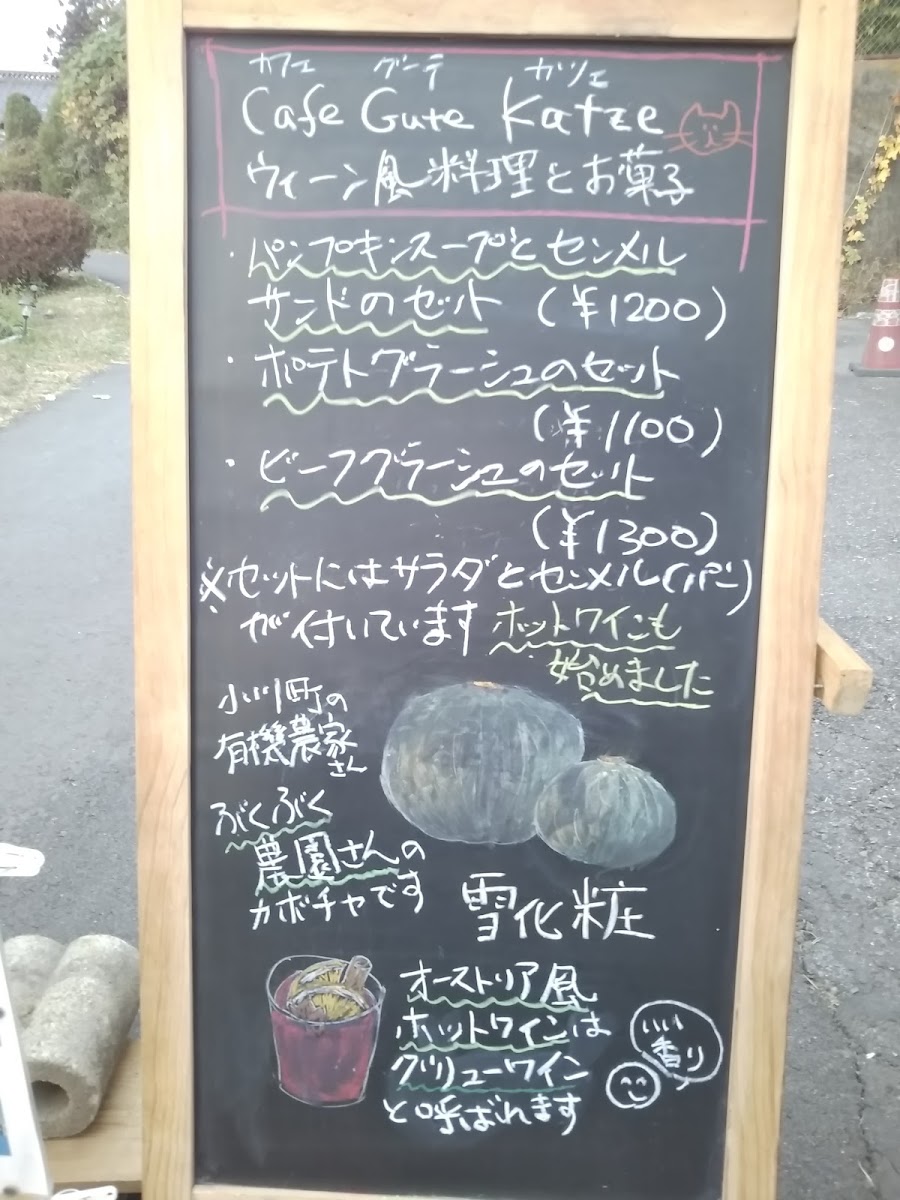 カフェ グーテ カツェ
Cafe Gute Katze
ウィーン風料理とお菓子
・パンプキンスープとセンメル
サンドのセット (¥1200)
・ポテトグラーシュのセット
(¥1100)
・ビーフグラーシュのセット
(¥1300)
※セットにはサラダとセンメル(パン)
が付いています
ホットワインも
始めました
小川町の
有機農家
さん
ぶくぶく
農園さんの
カボチャです
雪化粧
オーストリア風
ホットワインは
グリューワイン
と呼ばれます
いい
香り